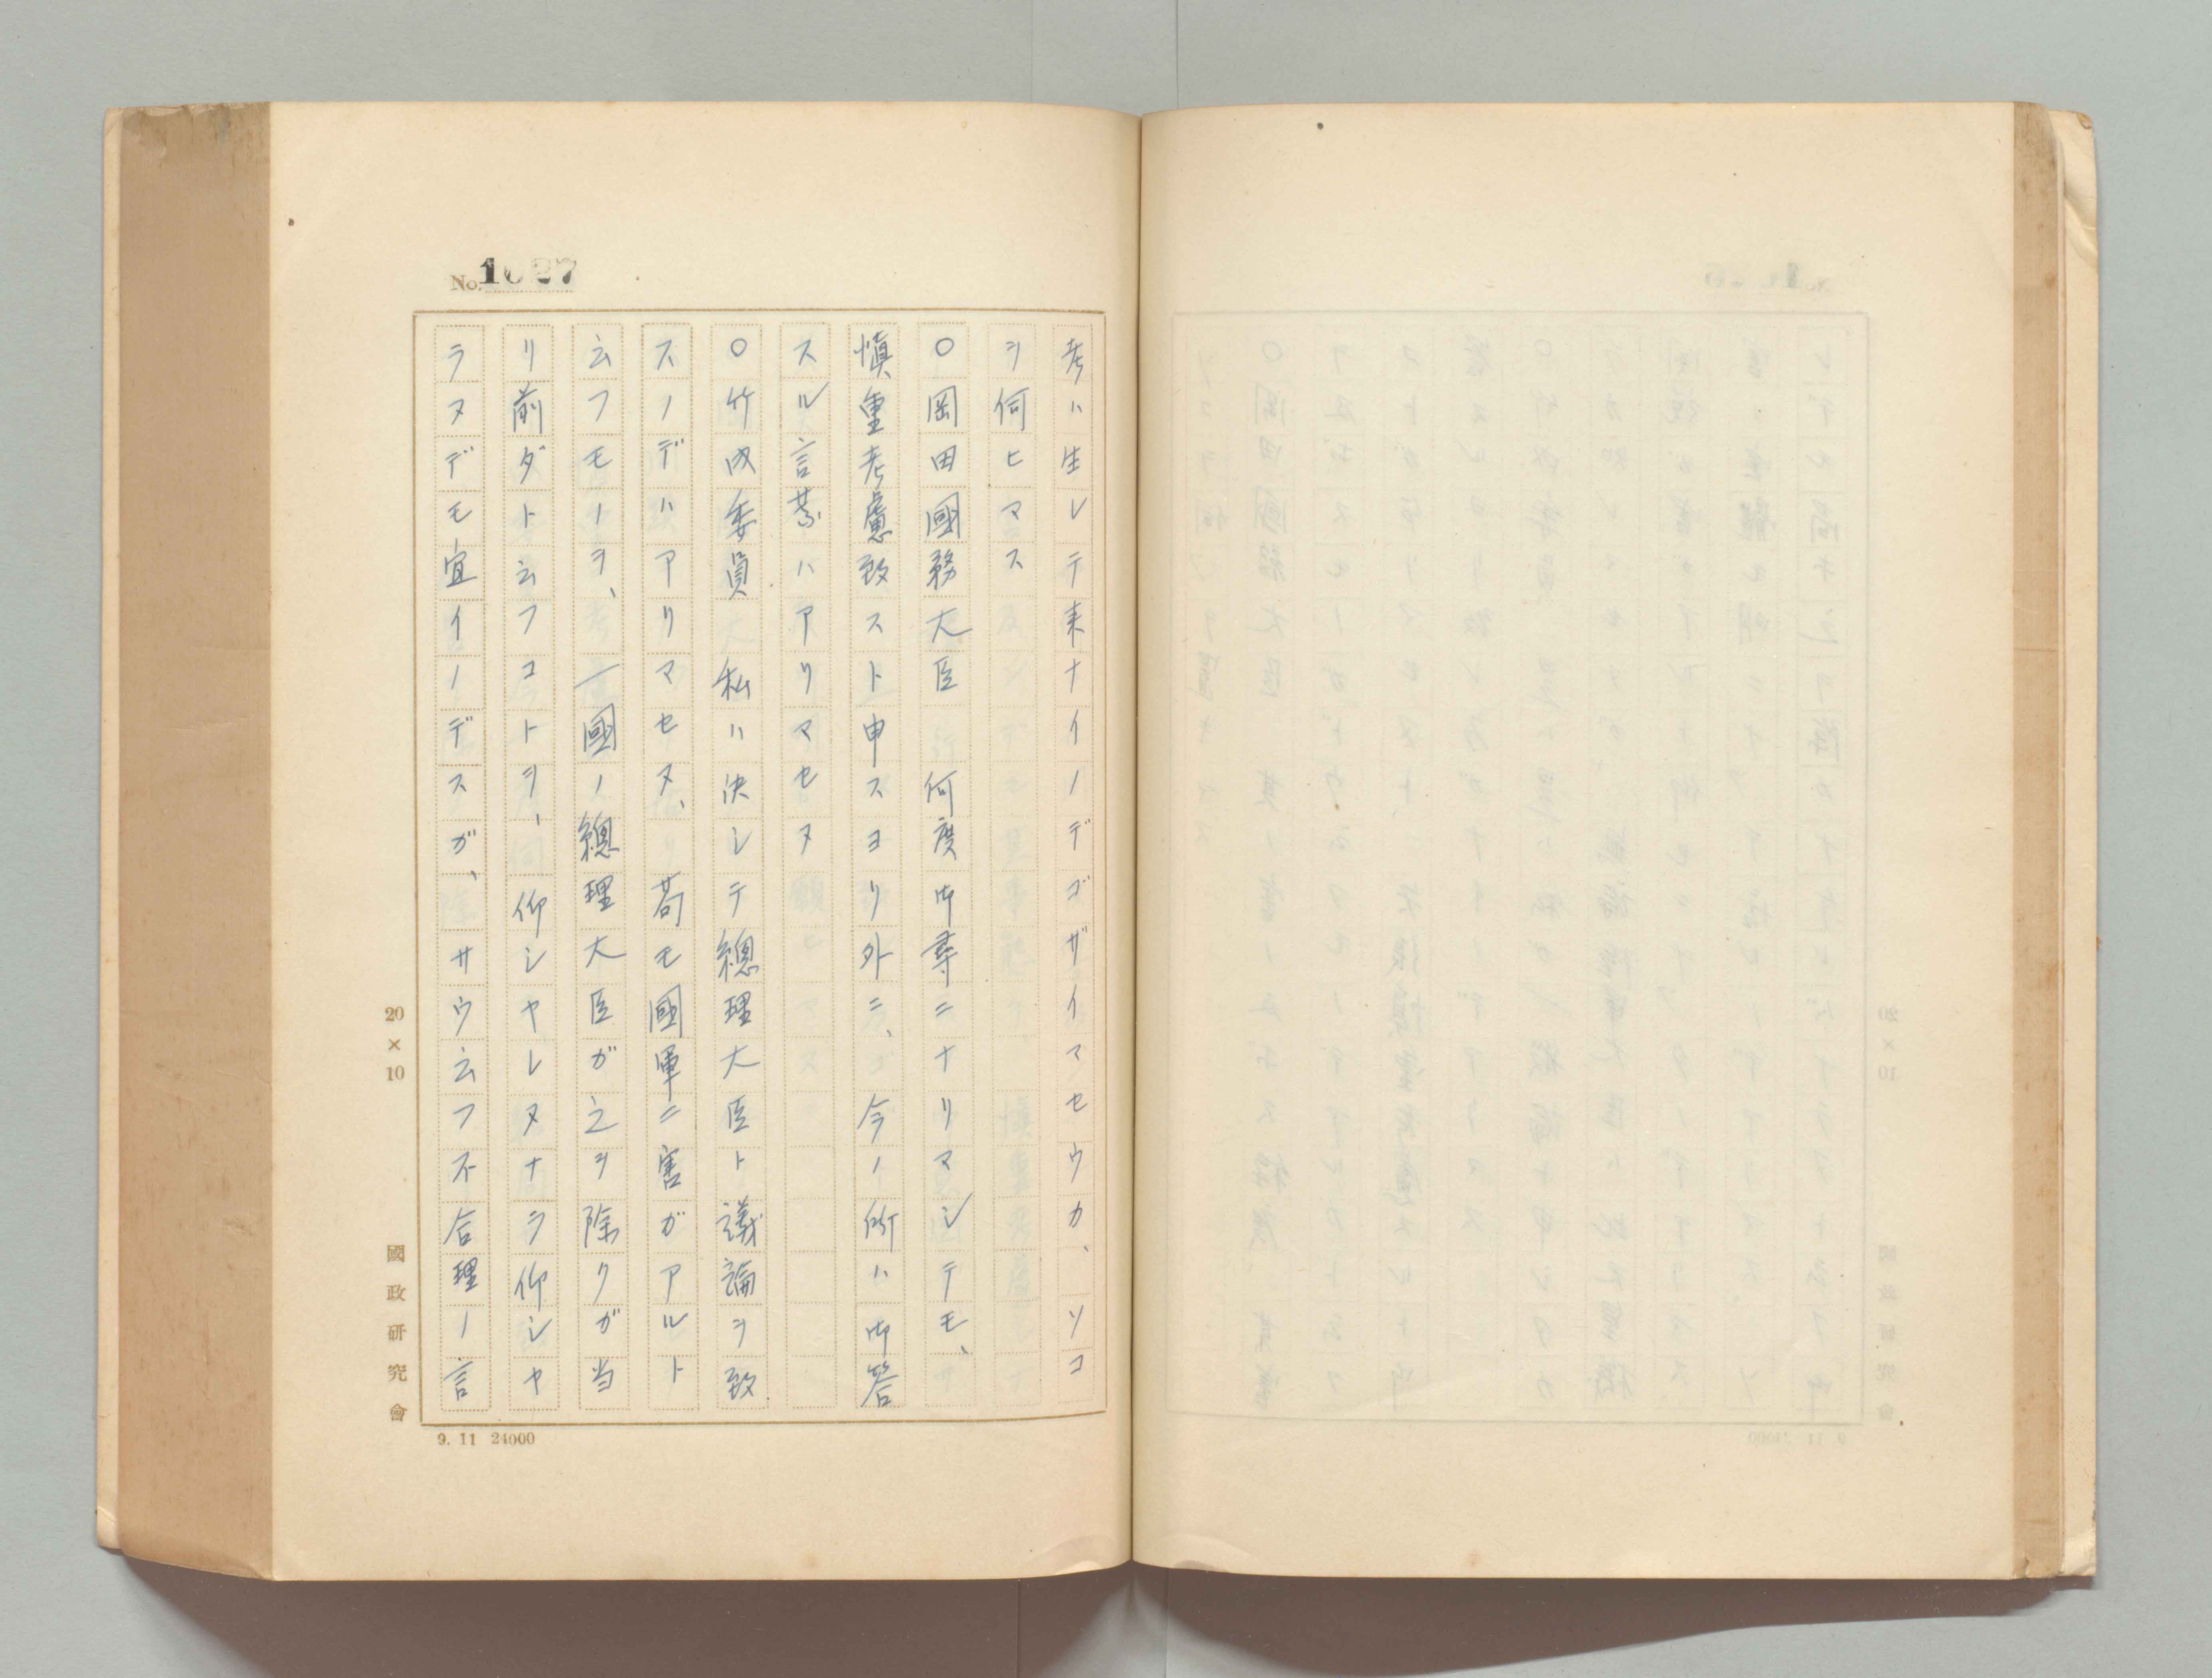 No. 1027
考ハ生レテ来ナイノデゴザイマセウカ、ソコ
ヲ伺ヒマス
〇岡田國務大臣 何度御尋ニナリマシテモ、
慎重考慮致スト申スヨリ外ニ、今ノ所ハ御答
スル言葉ハアリマセヌ
〇竹内委員 私ハ決シテ總理大臣ト議論ヲ致
スノデハアリマセヌ、苟モ國軍ニ害ガアルト
云フモノヲ、一國ノ總理大臣ガ之ヲ除クガ当
リ前ダト云フコトヲ、仰シヤレヌナラ仰シヤ
ラヌデモ宜イノデスガ、サウ云フ不合理ノ言
20×10
國政研究會
9. 11 24000